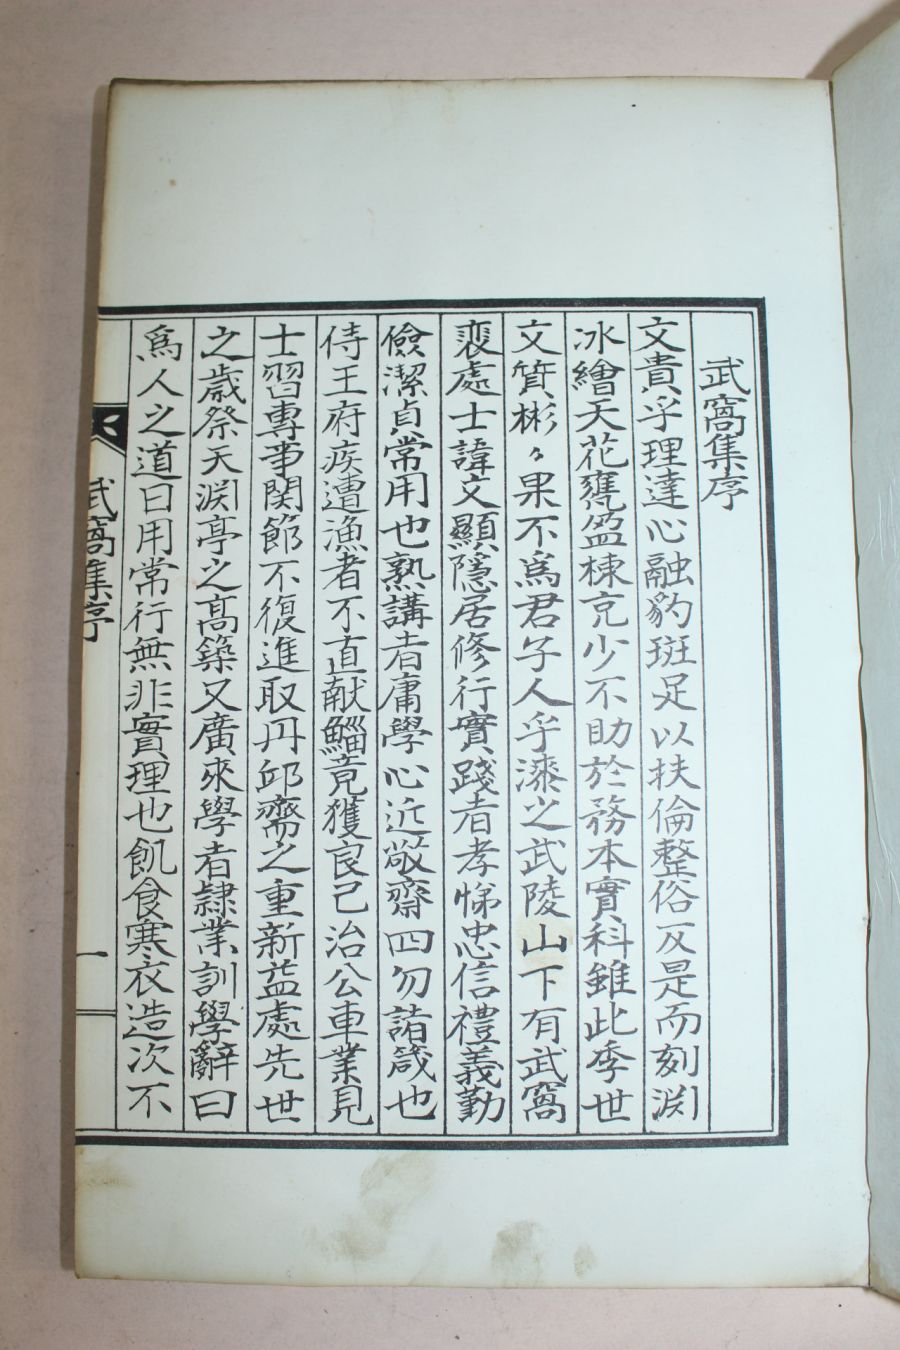 武窩集序
文貴乎理達心融豹斑足以扶倫整俗反是而刻渕
冰繪天花甕盈棟充少不助於務本實科雖此季世
文質彬々果不爲君子人乎漆之武陵山下有武窩
裵處士諱文顯隱居修行實踐者孝悌忠信禮義勤
儉潔貞常用也熟講者庸學心近敬齋四勿諸箴也
侍王府疾遭漁者不直献鯔竟獲良己治公車業見
士習專事関節不復進取丹邱齋之重新益處先世
之歳祭天淵亭之高築又廣來學者肄業訓學辭曰
爲人之道日用常行無非實理也飢食寒衣造次不
武窩集序
一